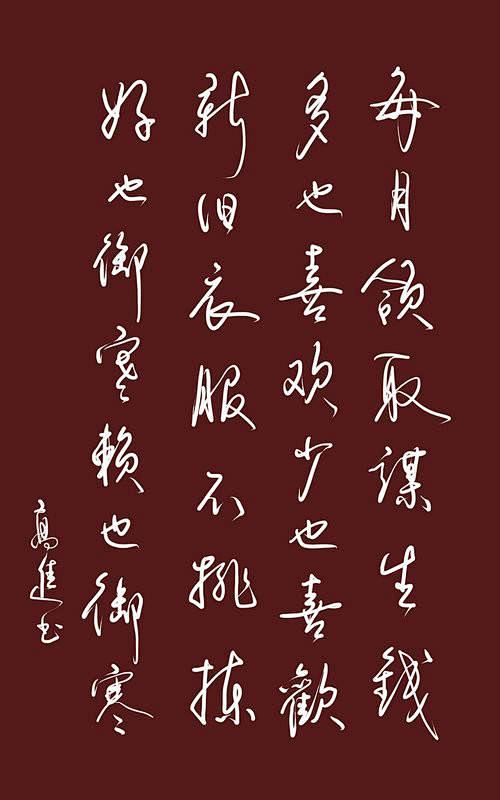 每月领取谋生钱
多也喜欢少也喜歡
新旧衣服不挑拣
好也御寒赖也御寒
高進书